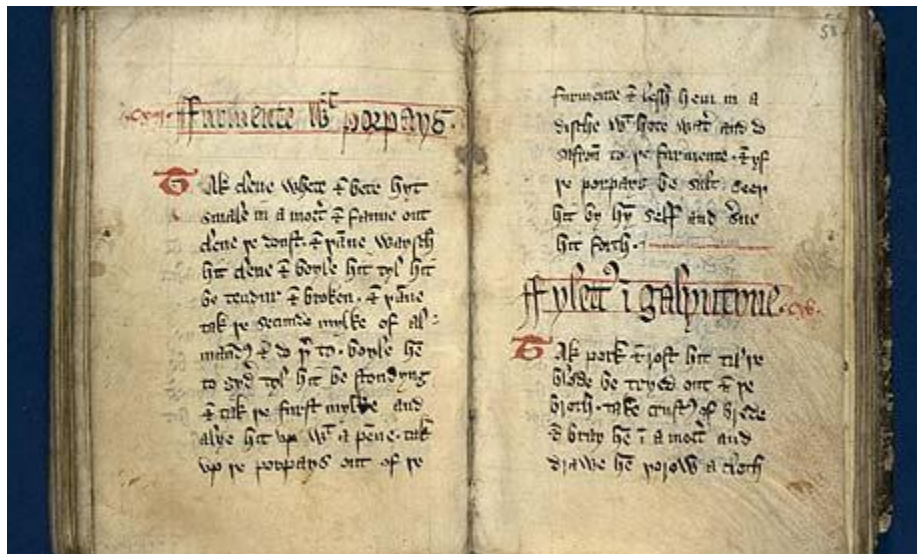 Furmente wt porpays.
Tak clene whete & bete hyt
smale in a mort & fanne out
clene þe doust. & þane waysch
hit clene & boyle hit tyl hit
be tendur & broken. & þane
tak þe secunde mylke of al-
mand & do þto. boyle hē
to gyd tyl hit be stondyng
& tak þe furst mylke and
alye hit vp wt a pēne. tak
vp þe porpays out of þe
58
furmente & lesh hem in a
dische wt hote wat and do
safron to þe furmente. & yf
þe porpays be salt. seeþ
hit by hȳ self and sue
hit forth.
Fylett ī galyntyne. cxv.
Tak pork & rost hit til þe
blode be tryed out & þe
broth. take crust of brede
& bray hē ī a mort and
drawe hē þorow a cloth